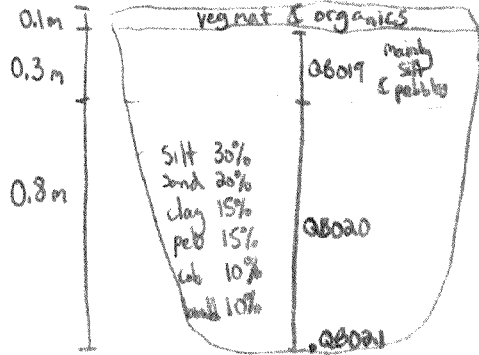 0.1m
veg mat & organics
0.3 m
QB019
mainly
silt
& pebbles
0.8m
silt 30%
sand 20%
clay 15%
peb 15%
cob 10%
10%
QB020
QB021